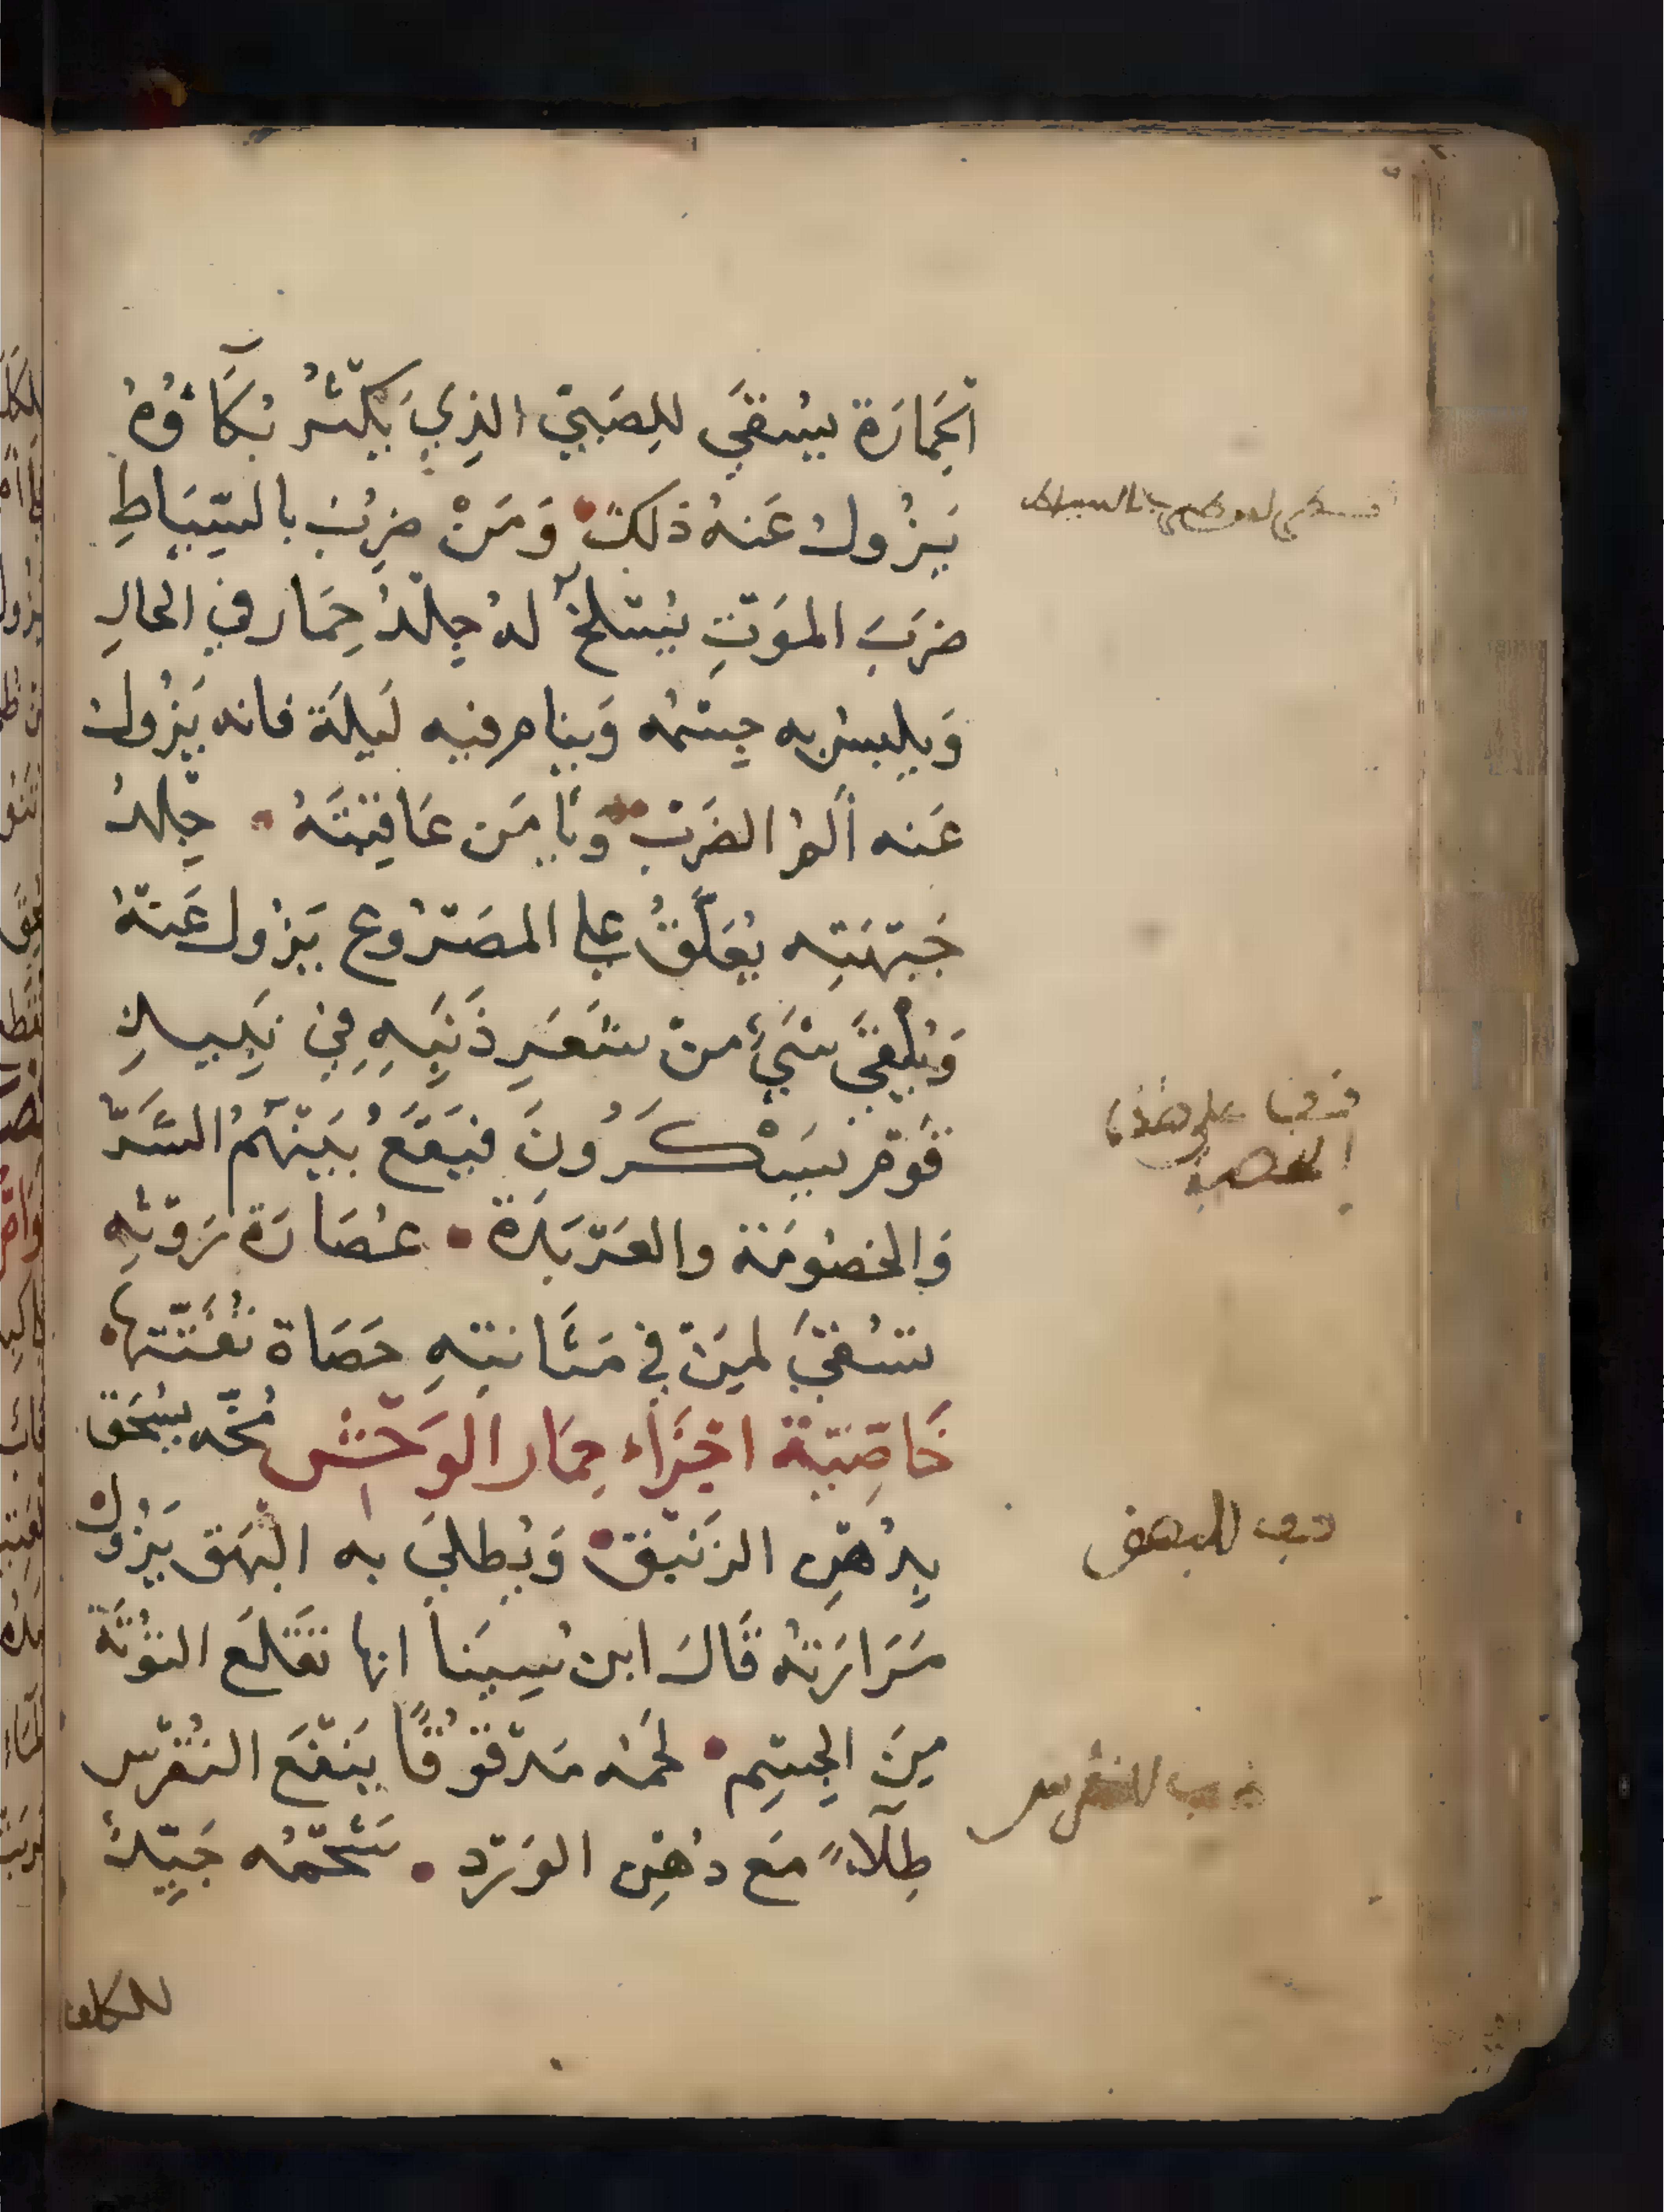 الحِمَارَة يُسْقَى لِلصَبيّ الذِي يَكْثُرُ بُكَآؤُهُ
يَزُولُ عَنهُ ذلكَ وَمَنْ ضُرِبَ بالسِّيَاطِ
ضرَبَ المَوْتِ يُسْلخُ لهُ جِلْدُ حِمَار في الحالِ
وَيلبسُ به جِسْمُه وَينام فيه لَيلَة فانه يَزُولُ
عَنه ألَمُ الضَربْ وَيأمَن عَاقبَتَهُ جِلْدُ
جَبْهَتِه يُعَلَّقُ على المصَرُوع يَزُول عَنْهُ
وَيُلْقَى شَيْء منْ شَعَرِ ذَنَبِهِ فِي نَبِيذِ
قَوْمٍ يَسْكَرُونَ فيَقَعُ بَيْنَهُمُ الشَرّ
وَالخصُومَة والعَرْبَدَة عُصَارَة رَوْثِهِ
تُسْقَى لمِنْ في مَثَانَتِهِ حَصَاة تُفَتّتها
خَاصِّيَة اجْزَاء حِمَار الوَحْش مُخّه يُسْحَق
بِدُهْنِ الزَنْبَق وَيُطلَى به البَهَق يَزُول
مَرَارَتُه قَالَ ابن سِينَا انها تَقْلَع التُوثَة
مِنَ الجِسْمِ لحَمُه مَدْقُوقًا يَنْفَع النُقْرس
طِلَآءً مَع دُهْنِ الوَرْد شَحْمُه جَيّد
للكلف
للبهق
للنقرس